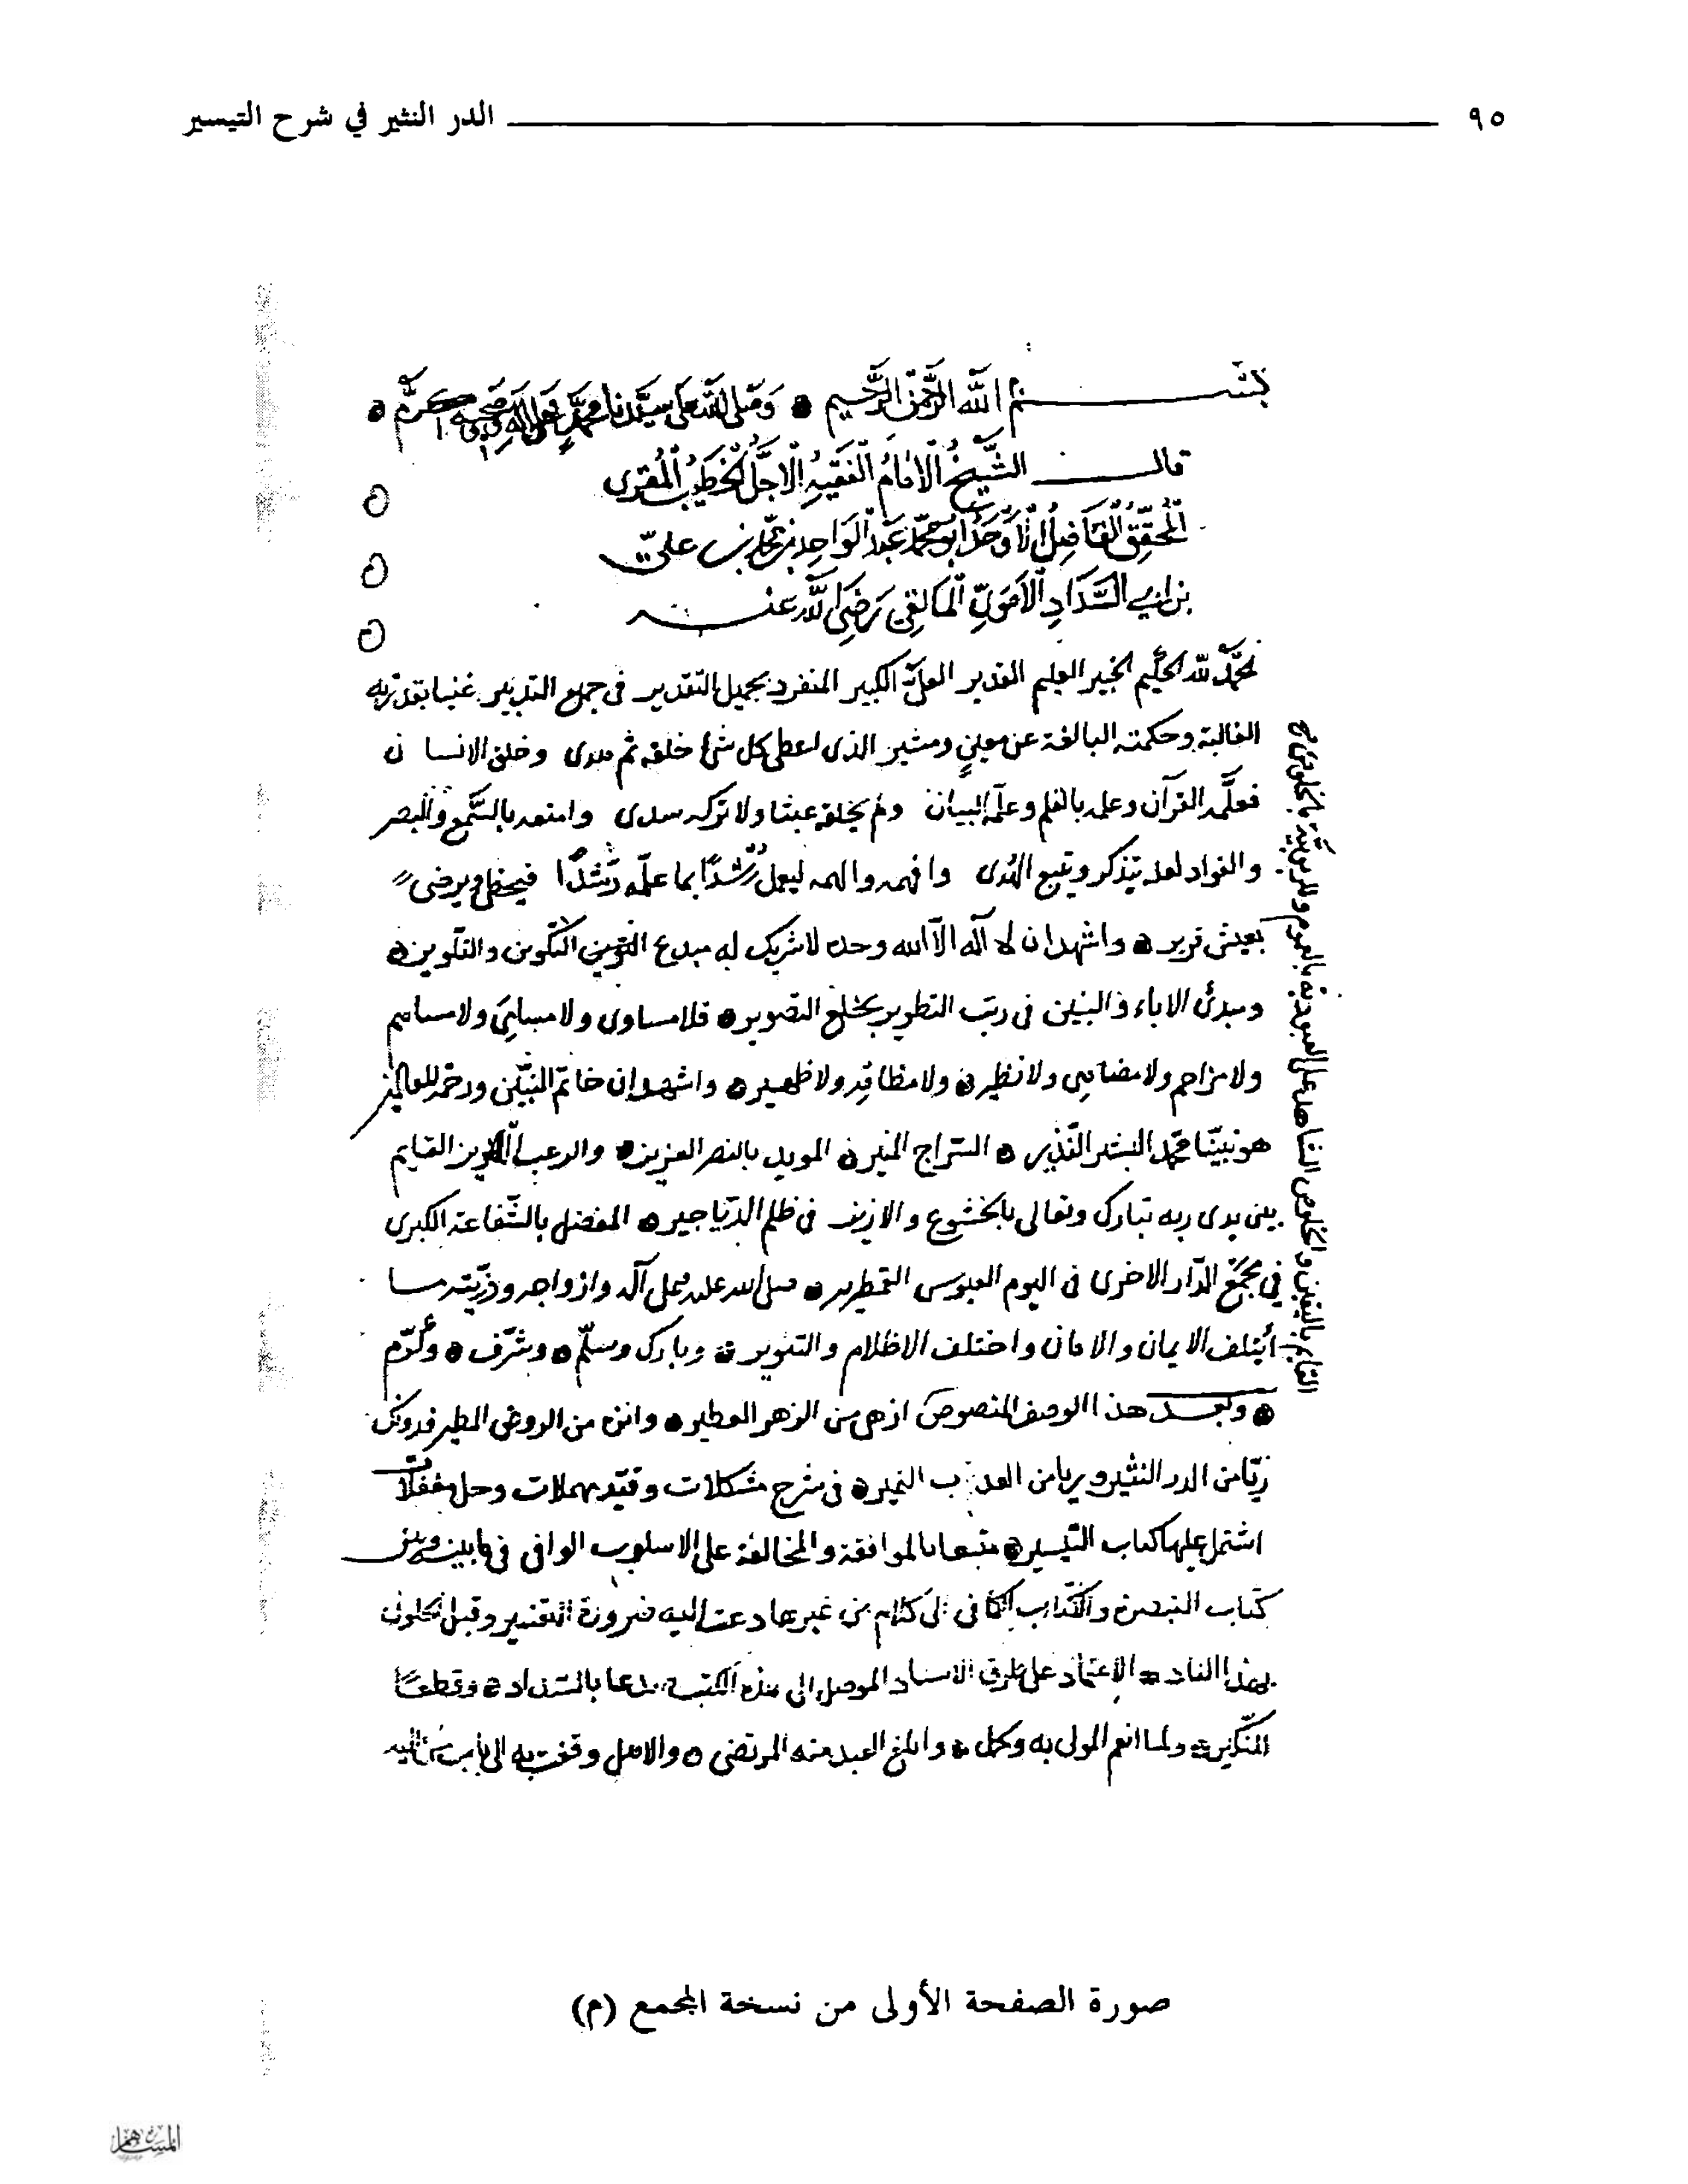 ٩٥ الدر النثير في شرح التيسير
بسم الله الرحمن الرحيم وصلى الله على سيدنا محمد وعلى اله وصحبه
قال الشيخ الامام الفقيه الاجل الخطيب المقرى
المحقق الفاضل الاوحد ابو محمد عبد الواحد بن محمد بن علي
بن ابي السداد الاموي المالقي رضي الله عنه
الحمد لله الحكيم الخبير العليم القدير العلي الكبير المنفرد بجميل التقدير في جميع التدبير غنيا بقدرته
الغالبة وحكمته البالغة عن معين ومشير الذى اعطى كل شئ خلقه ثم هدى وخلق الانسان
فعلمه القرآن وعلمه بالقلم وعلمه البيان ولم يخلقه عبثا ولا تركه سدى وامتعه بالسمع والبصر
والفواد لعله يتذكر ويتبع الهدى وافهمه والهمه ليعمل رشدا بما علمه رشدا فيحظى ويرضى
بعيش قرير واشهد ان لا اله الا الله وحده لا شريك له مبدع التكوين والتلوين
ومبدئ الاباء والبنين في رتب التطوير بخلع التصوير فلا مساوى ولا مباين ولا مساهم
ولا مزاحم ولا مضاهى ولا نظير ولا مظافر ولا ظهير واشهد ان خاتم النبيين ورحمة للعالمين
هو نبينا محمد البشير النذير السراج المنير المويد بالنصر العزيز والرعب القايم
بين يدى ربه تبارك وتعالى بالخشوع والازيز في ظلم الدياجير المفضل بالشفاعة الكبرى
في مجمع الدار الاخرى في اليوم العبوس القمطرير صلى الله عليه وعلى آله وازواجه وذريته ما
ائتلف الايمان والامان واختلف الاظلام والتنوير وبارك وسلم وشرف وكرم
وبعد هذا الوصف المنصوص ازهى من الزهر العطير من الروض المطير فدونك
زيا من الدر النثير وريا من العذب النمير في شرح مشكلات وقيد مهملات وحل مقفلات
اشتمل عليها كتاب التيسير متبعا بالموافقة والمخالفة على الاسلوب الوافى في ما بينه وبين
كتاب التبصرة والكتاب الكافى الى كلام من غيرها دعت اليه ضرورة التفسير وقبل الحلول
بهذا الناد الاعتماد على طرق الاسناد الموصل الى هذه الكتب بالسداد وقطعا
للنكير ولما انعم المولى به وكمل وابلغ العبد منه المرتضى والامل وقفت به الى
صورة الصفحة الأولى من نسخة المجمع (م)